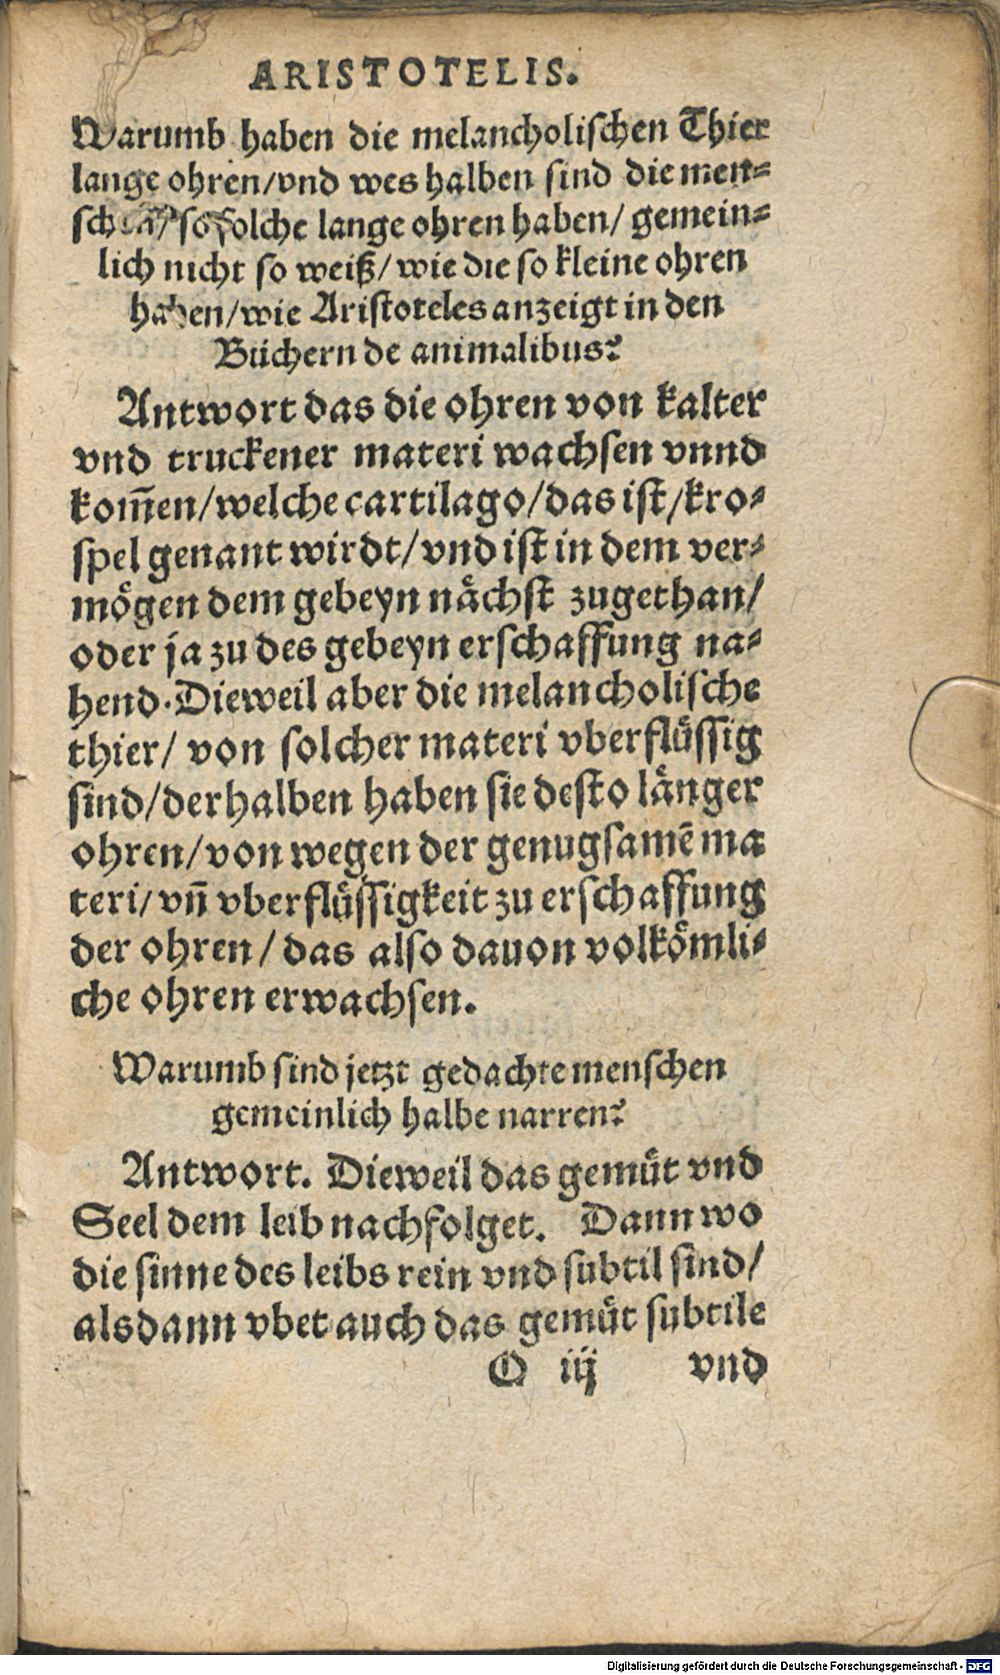 ARISTOTELIS.
Warumb haben die melancholischen Thier
lange ohren/vnd wes halben sind die men⸗
so solche lange ohren haben/ gemein⸗
lich nicht so weiß/ wie die so kleine ohren
haben/wie Aristoteles anzeigt in den
Büchern de animalibus?
Antwort das die ohren von kalter
vnd truckener materi wachsen vnnd
kom̃en/welche cartilago/das ist/kro⸗
spel genant wirdt/vnd ist in dem ver⸗
mögen dem gebeyn nächst zugethan/
oder ja zu des gebeyn erschaffung na⸗
hend. Dieweil aber die melancholische
thier/ von solcher materi vberflüssig
sind/derhalben haben sie desto länger
ohren/von wegen der genugsamẽ ma
teri/ vñ vberflüssigkeit zu erschaffung
der ohren/ das also dauon volkömli⸗
che ohren erwachsen.
Warumb sind jetzt gedachte menschen
gemeinlich halbe narren?
Antwort. Dieweil das gemüt vnd
Seel dem leib nachfolget. Dann wo
die sinne des leibs rein vnd subtil sind/
alsdann vbet auch das gemüt subtile
O iij vnd
Digitalisierung gefördert durch die Deutsche Forschungsgemeinschaft - DFG